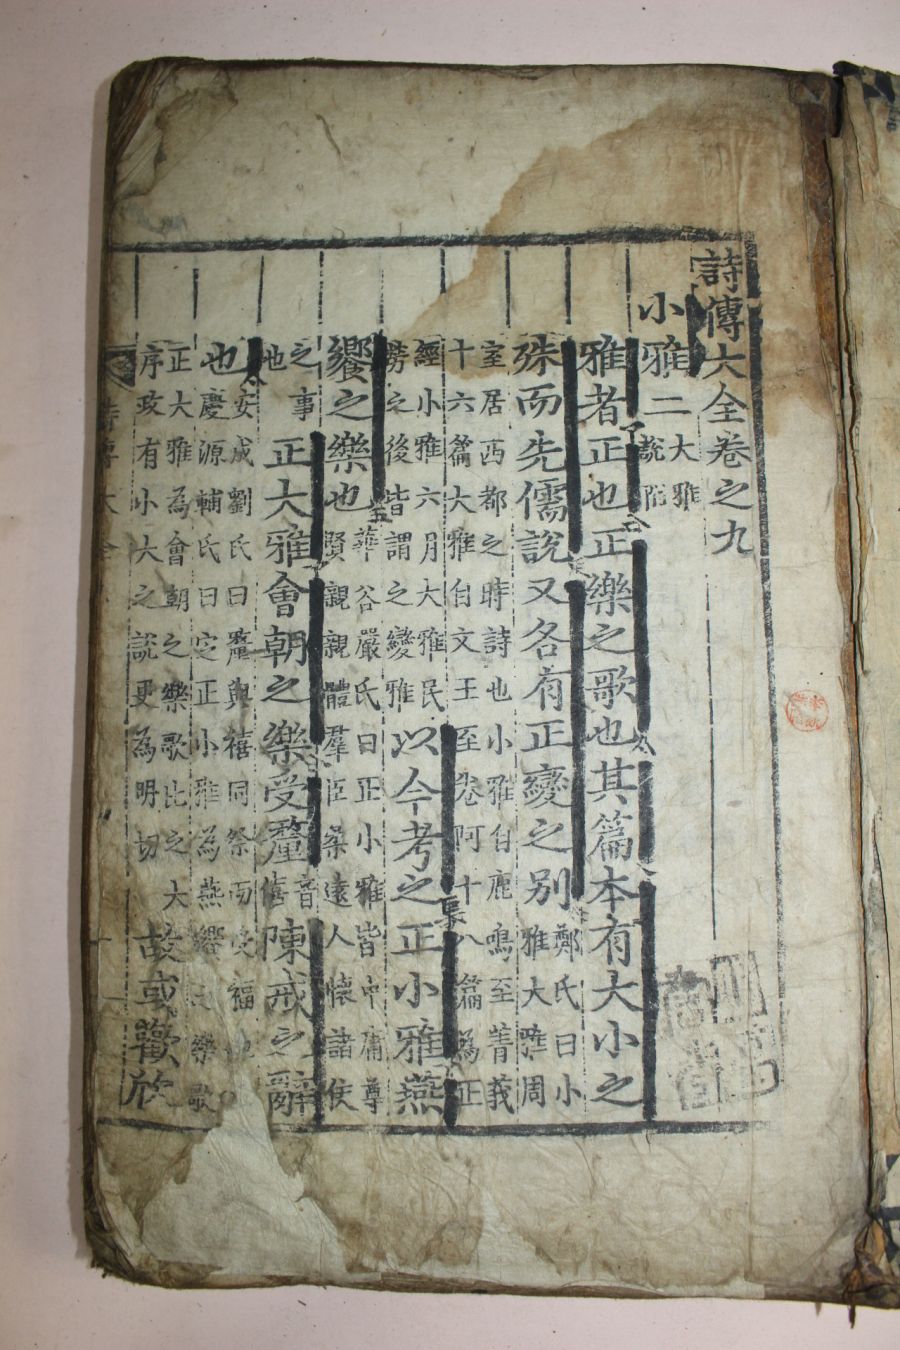 詩傳大全卷之九
小雅二大雅說附
雅者正也正樂之歌也其篇本有大小之
殊而先儒說又各有正變之別鄭氏曰小雅大雅周
室居西都之時詩也小雅自鹿鳴至菁莪十六篇大雅自文王至卷阿十八篇為正
經小雅六月大雅民勞之後皆謂之變雅以今考之正小雅燕
饗之樂也華谷嚴氏曰正小雅皆中庸尊賢親親體羣臣柔遠人懷諸侯
之事也正大雅會朝之樂受釐音僖陳戒之辭
也安成劉氏曰釐與禧同祭而受福也慶源輔氏曰定正小雅為燕饗之樂歌
正大雅為會朝之樂歌比之大序政有小大之說更為明切故或歡欣
詩傳大全